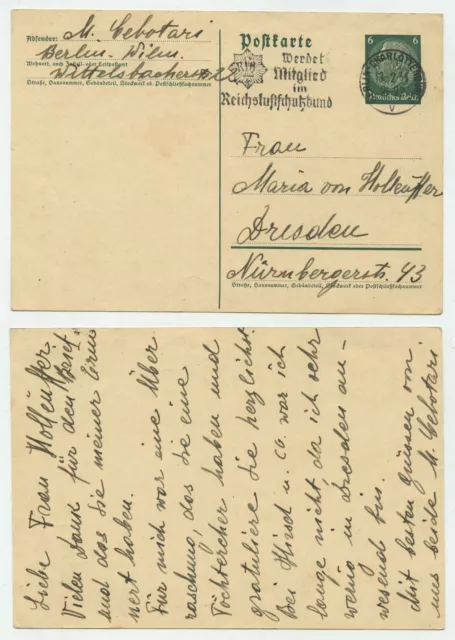 Absender: M. Cebotari
Berlin-Wilm.
Wohnort, auch Zustell- oder Leitpostamt
Wittelsbacherstr. 22
Straße, Hausnummer, Gebäudeteil, Stockwerk oder Postschließfachnummer
Postkarte
Werdet
Mitglied
im
Reichsluftschutzbund
6 6
Deutsches Reich
CHARLOTTENBURG
Frau
Maria von Holleuffer
Dresden
Nürnbergerstr. 43
Straße, Hausnummer, Gebäudeteil, Stockwerk oder Postschließfachnummer
Liebe Frau Holleuffer,
Vielen Dank für den Brief
und das Sie meiner
nert haben.
Für mich war eine Über
raschung, das sie eine
Töchtercher haben und
gratuliere Sie herzlichst.
Bei Hirsch u. Co. war ich
lange nicht da ich sehr
wenig in Dresden an-
wesend bin.
Mit besten grüssen von
uns beide M. Cebotari.